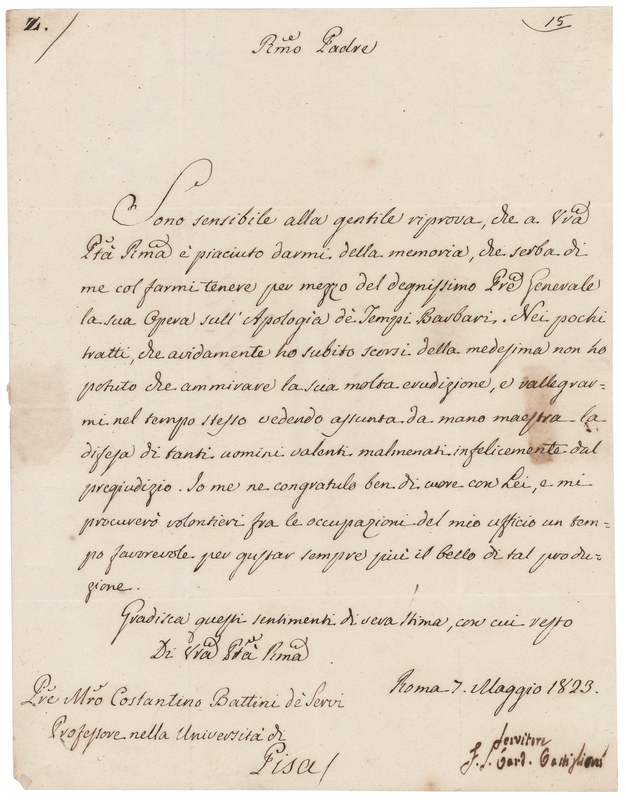 Z.
15
Rmo Padre
Sono sensibile alla gentile riprova, che a Vra
Ptà Rma è piaciuto darmi della memoria, che serba di
me col farmi tenere per mezzo del degnissimo Pre Generale
la sua Opera sull'Apologia dè Tempi Barbari. Nei pochi
tratti, che avidamente ho subito scorsi della medesima non ho
potuto che ammirare la sua molta erudizione, e rallegrar=
mi nel tempo stesso vedendo assunta da mano maestra la
difesa di tanti uomini valenti malmenati infelicemente dal
pregiudizio. Io me ne congratulo ben di cuore con Lei, e mi
procurerò volontieri fra le occupazioni del mio ufficio un tem=
po favorevole per gustar sempre più il bello di tal produ=
zione.
Gradisca questi sentimenti di vera stima, con cui resto
Di Vra Ptà Rma
Roma 7. Maggio 1823.
Pre Mro Costantino Battini dè Servi
Professore nella Università di
Pisa
Servitore
F. S. Card. Castiglioni